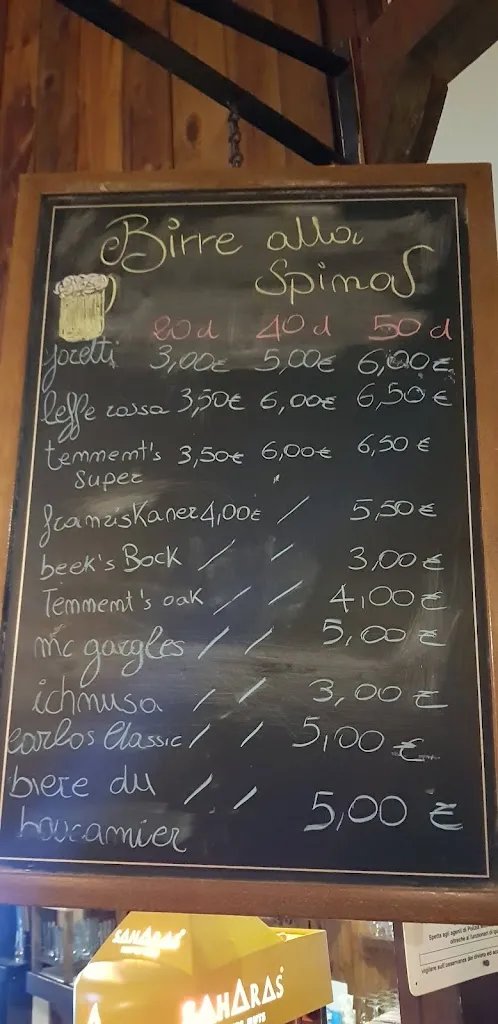 Birre alla
Spina
20 d 40 d 50 d
foretti 3,00€ 5,00€ 6,00€
leffe rossa 3,50€ 6,00€ 6,50€
temment's 3,50€ 6,00€ 6,50€
super
franzisKaner 4,00€ / 5,50€
beek's Bock / / 3,00€
Temment's oak / / 4,00€
mc gargles / / 5,00€
ichnusa / / 3,00€
carlos Classic / / 5,00€
biere du / / 5,00€
boucamier
SAHARAS
SAHARAS
NUTS
Spetta agli agenti di Polizia
vigilare sull'osservanza del divieto ed